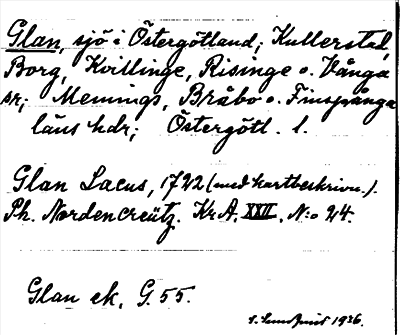 Glan, sjö i Östergötland; Kullerstad,
Borg, Kvillinge, Risinge o. Vånga
sr; Memmings, Bråbo o. Finspånga
läns hdr; Östergötl. l.
Glan Lacus, 1722 (med kartbeskrivn.).
Ph. Nordencreütz. KrA. XXII. N:o 24.
Glan ek. G. 55.
S. Lundqvist 1936.